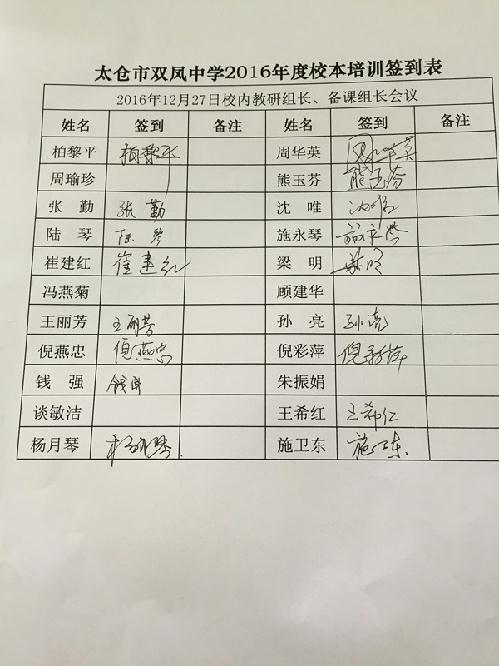 太仓市双凤中学2016年度校本培训签到表
2016年12月27日校内教研组长、备课组长会议
姓名 签到 备注 姓名 签到 备注
柏黎平 柏黎平 周华英 周华英
周瑜珍 熊玉芬 熊玉芬
张勤 张勤 沈唯 沈唯
陆琴 陆琴 施永琴 施永琴
崔建红 崔建红 梁明 梁明
冯燕菊 顾建华
王丽芳 王丽芳 孙亮 孙亮
倪燕忠 倪燕忠 倪彩萍 倪彩萍
钱强 钱强 朱振娟
谈敏洁 王希红 王希红
杨月琴 杨月琴 施卫东 施卫东